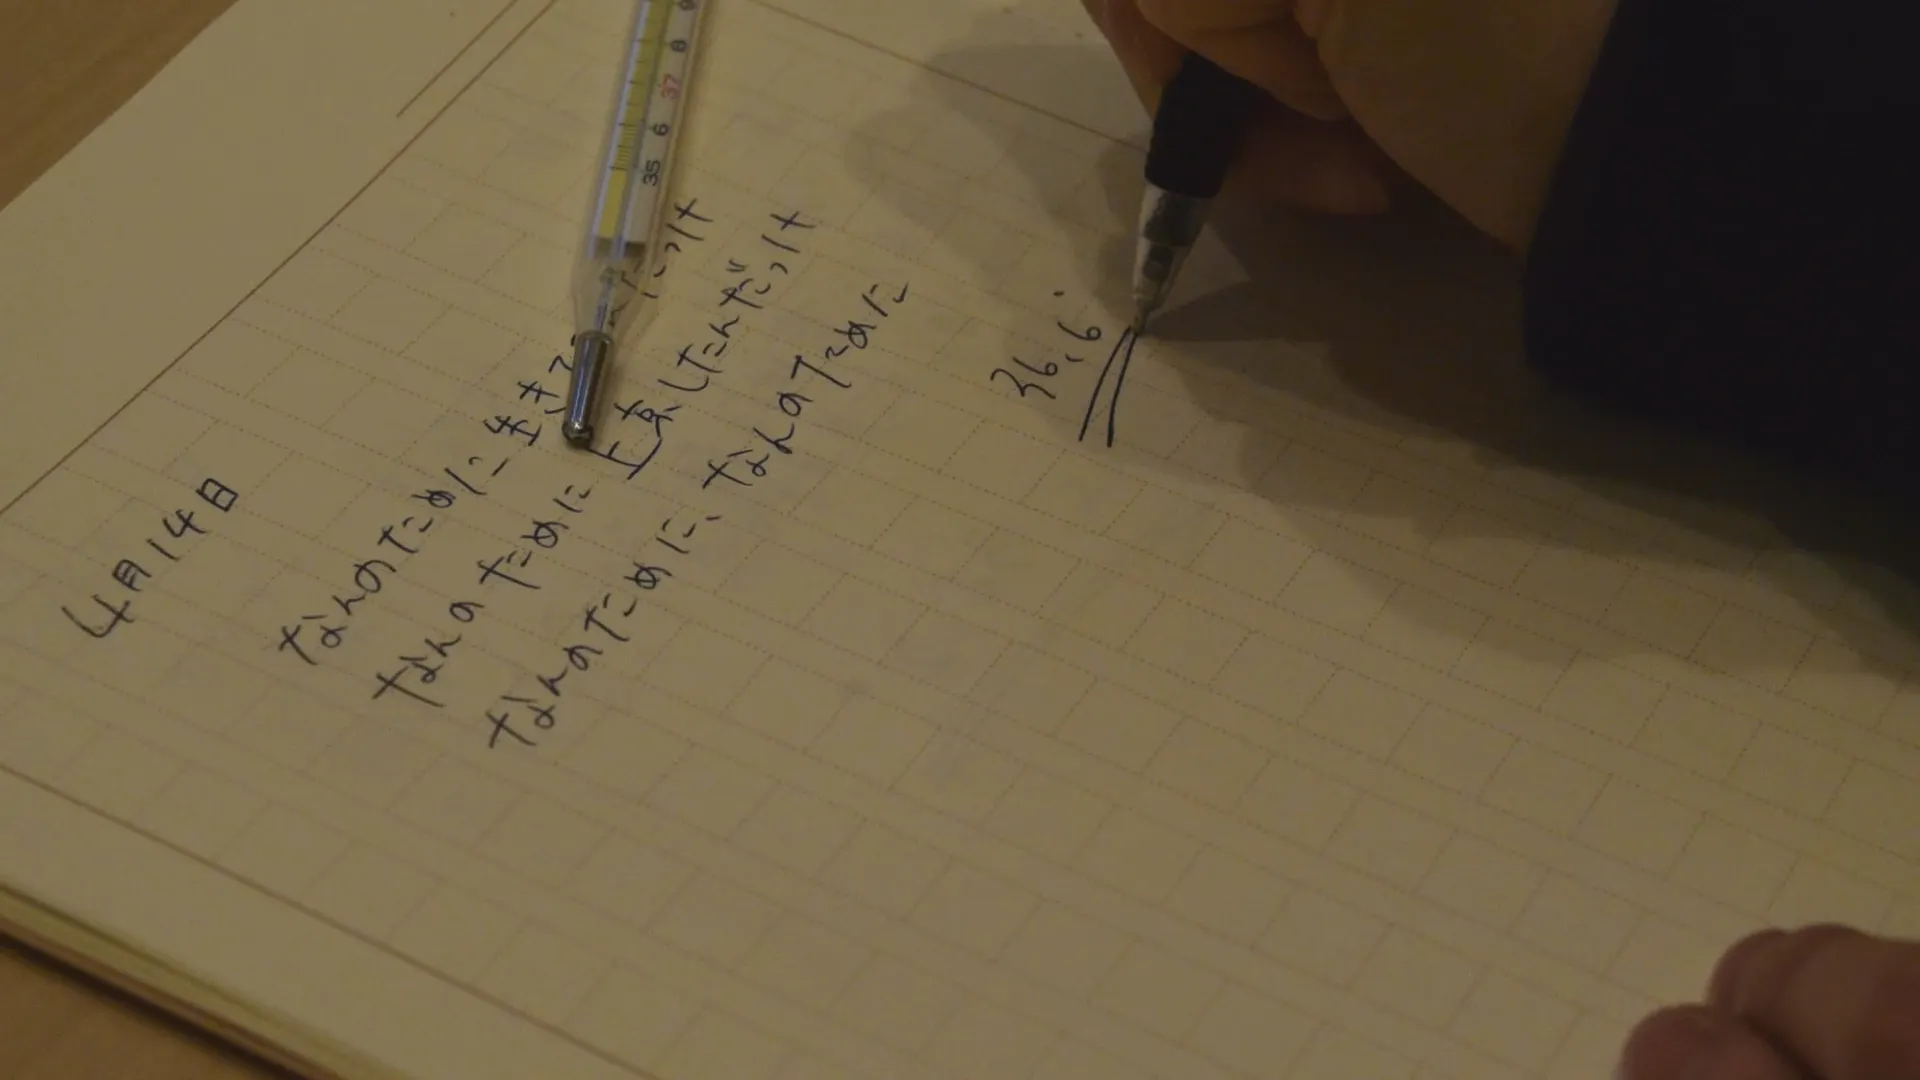 4月14日
なんのために生き っけ
なんのために上京したんだっけ
なんのために、なんのために
36.6
35 6 37 8